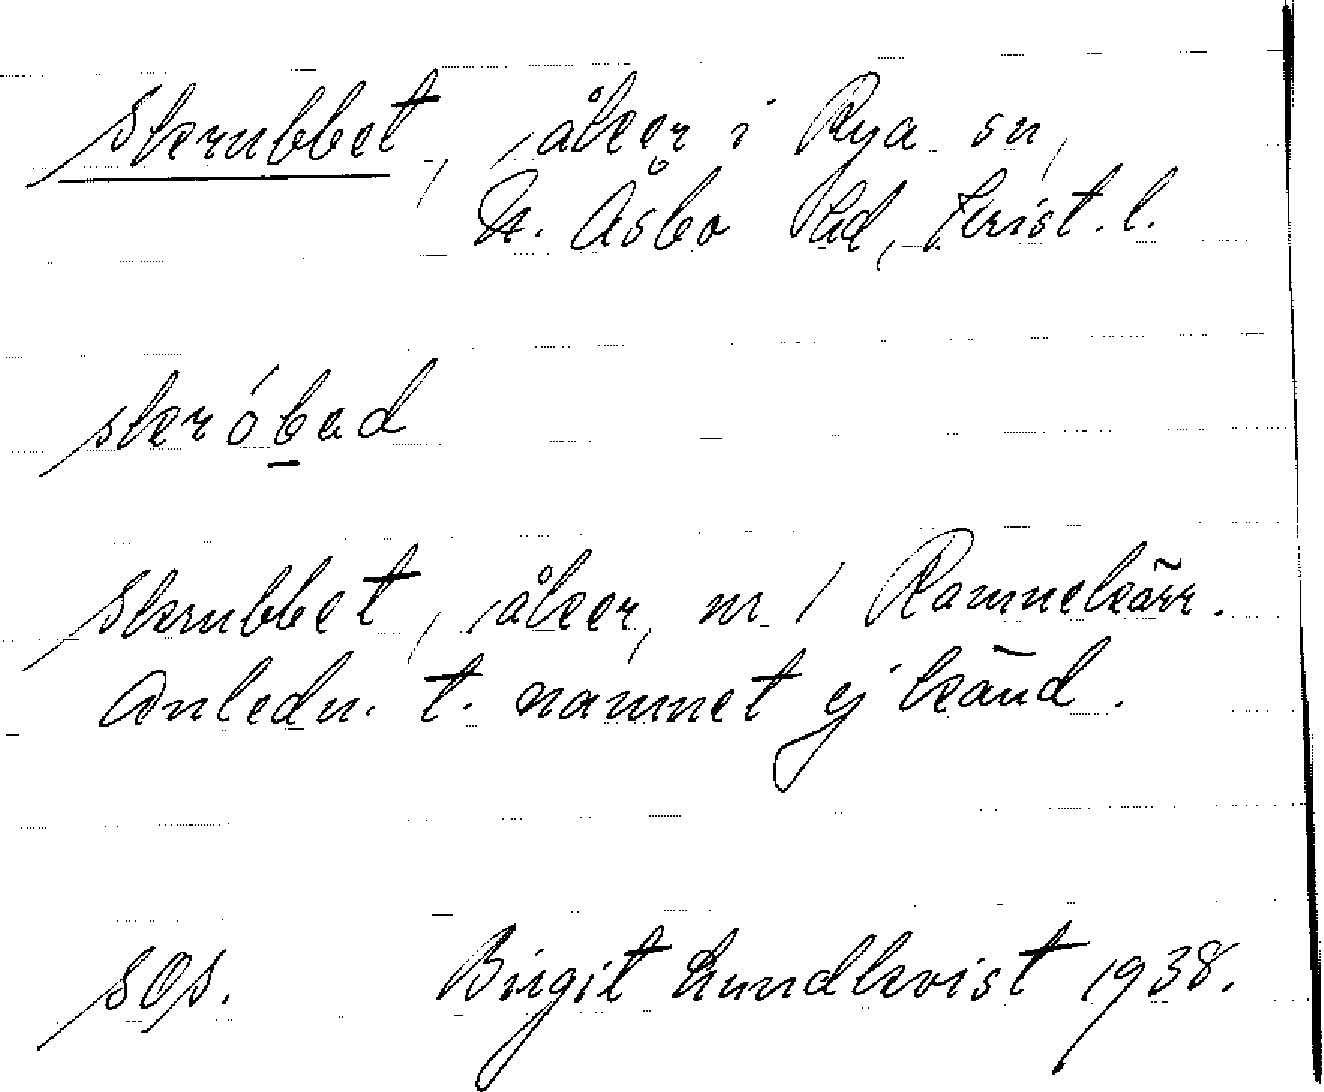 Skrubbet, åker i Rya sn,
N. Åsbo hd, Krist. l.
skróbad
Skrubbet, åker, nr 1 Ramnekärr.
Anledn. t. namnet ej känd.
sOs. Birgit Lundkvist 1938.